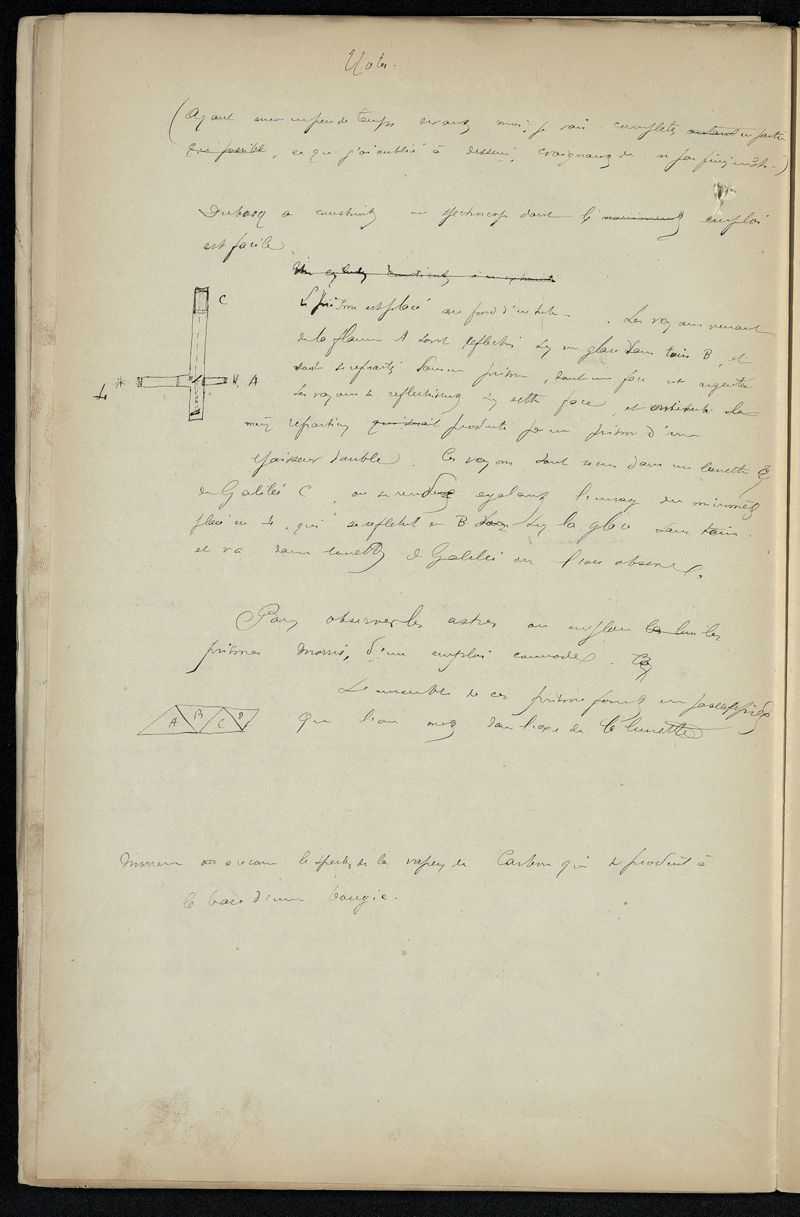 Notes.
(Ayant encore un peu de temps devant moi, je vais compléter autant en partie
que possible, ce que j'ai oublié à dessein, craignant de n
Dubosq a construit un spectroscope dont le emploi
est facile
Un
C
Le prisme est placé au fond d'un tube. Les rayons venant
de la flamme A sont réfléchis par une glace sans tain B, et
vont se réfracter dans un prisme, dont une face est argentée
A
Les rayons se réfléchissent sur cette face, et la
même réfraction que produite par un prisme d'une
épaisseur double. Ces rayons sont reçus dans une lunette
de Galilée C, où se rend également l'image du micromètre
placé en, qui se réfléchit en B sur la glace sans tain.
et va dans lunette de Galilée où l'on observe.
Pour observer les astres on emploie les
prismes, d'un emploi commode.
L'ensemble de ces prismes forme un parallélépipède
A B C D
que l'on met dans l'axe de la lunette
a reconnu le spectre de la vapeur de Carbone qui se produit à
la base d'une bougie.